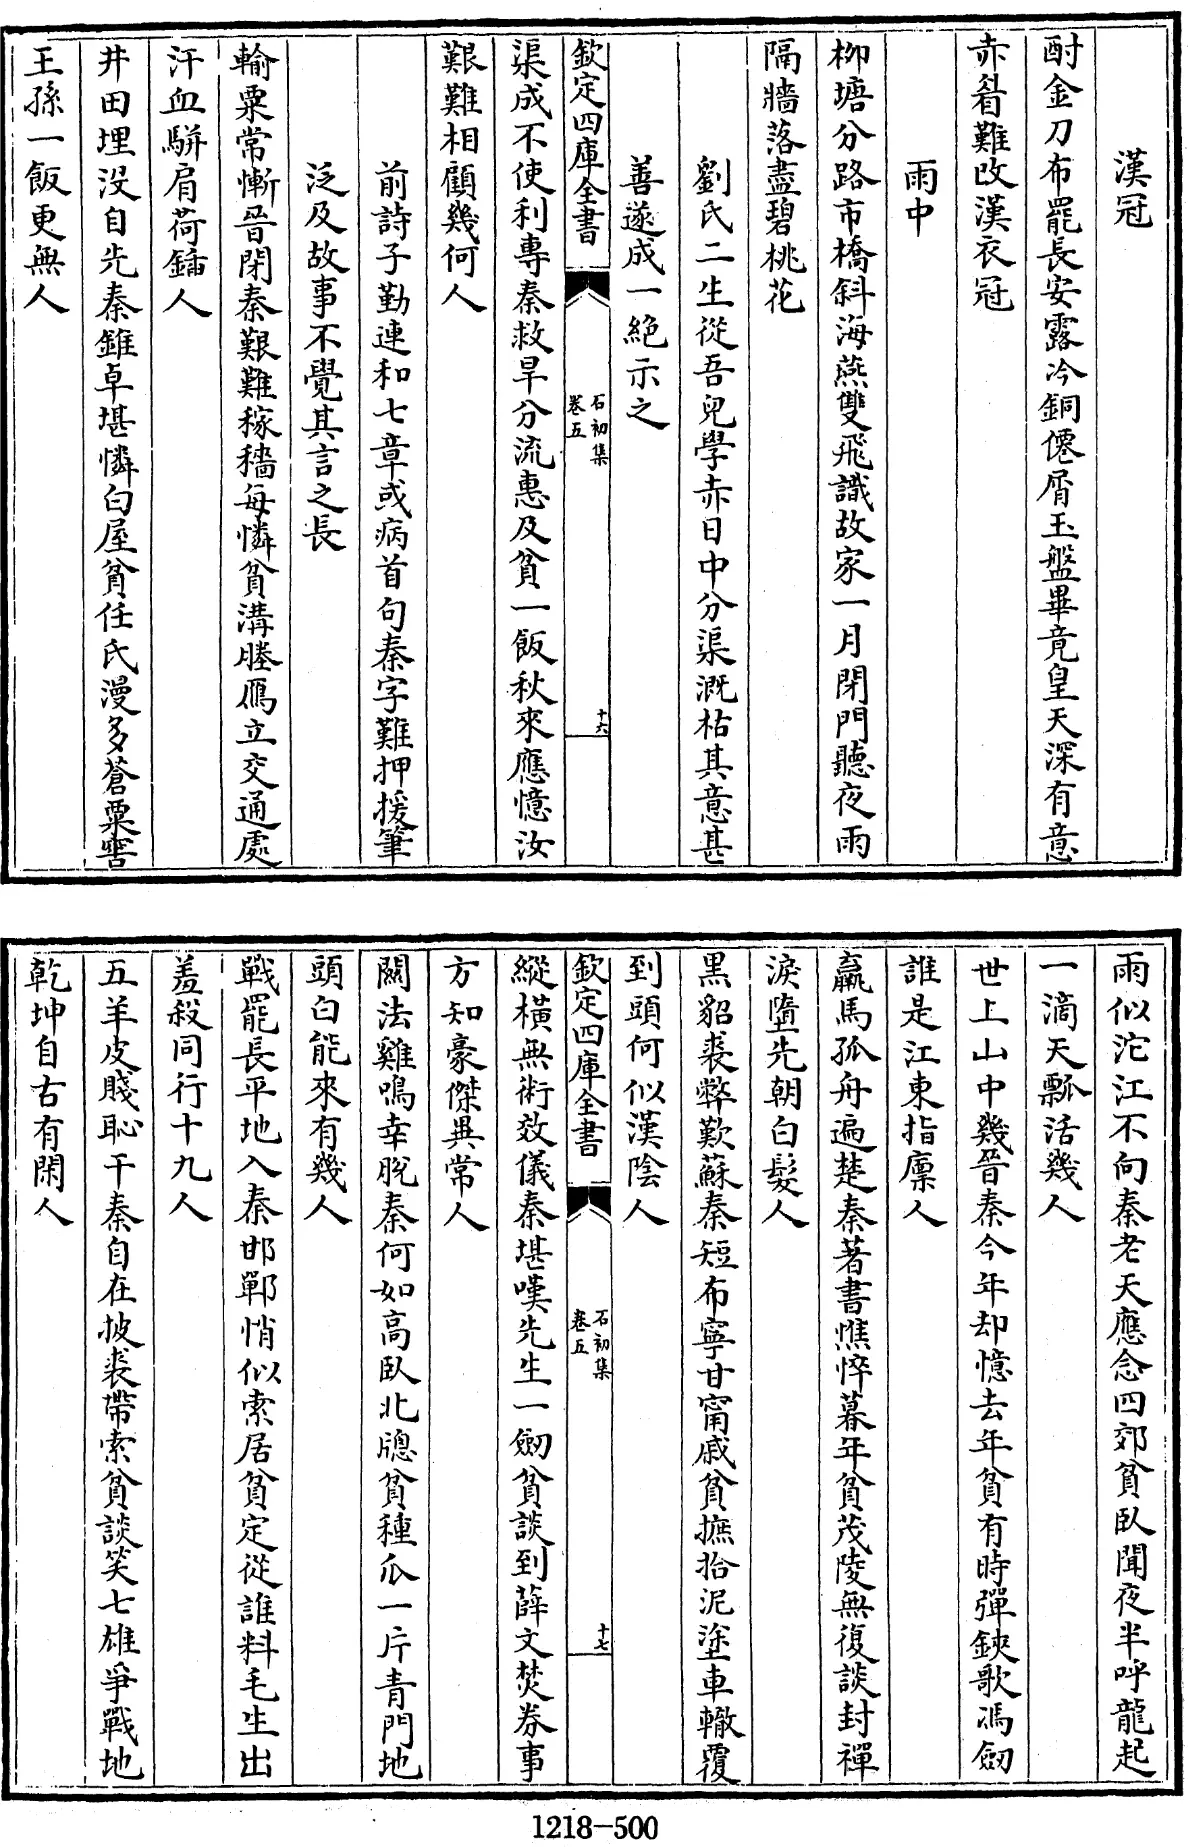 漢冠
酎金刀布罷長安露冷銅僊屑玉盤畢竟皇天深有意
赤眉難改漢衣冠
雨中
柳塘分路市橋斜海燕雙飛識故家一月閉門聽夜雨
隔牆落盡碧桃花
劉氏二生從吾兒學赤日中分渠溉枯其意甚
善遂成一絶示之
欽定四庫全書
石初集
卷五
十六
渠成不使利專秦救旱分流惠及貧一飯秋來應憶汝
艱難相顧幾何人
前詩子勤連和七章或病首句秦字難押援筆
泛及故事不覺其言之長
輸粟常慚晉閉秦艱難稼穡每憐貧溝塍鴈立交通處
汗血駢肩荷鍤人
井田埋没自先秦錐卓堪憐白屋貧任氏漫多蒼粟窖
王孫一飯更無人
雨似沱江不向秦老天應念四郊貧臥聞夜半呼龍起
一滴天瓢活幾人
世上山中幾晉秦今年却憶去年貧有時彈鋏歌馮劒
誰是江東指廩人
羸馬孤舟遍楚秦著書憔悴暮年貧茂陵無復談封禪
淚墮先朝白髮人
黑貂裘弊歎蘇秦短布寧甘甯戚貧摭拾泥塗車轍覆
到頭何似漢陰人
欽定四庫全書
石初集
卷五
十七
縱橫無術效儀秦堪嘆先生一劒貧談到薛文焚券事
方知豪傑異常人
關法雞鳴幸脫秦何如高臥北牕貧種瓜一片青門地
頭白能來有幾人
戰罷長平地入秦邯鄲悄似索居貧定從誰料毛生出
羞殺同行十九人
五羊皮賤恥干秦自在披裘帶索貧談笑七雄爭戰地
乾坤自古有閑人
1218-500